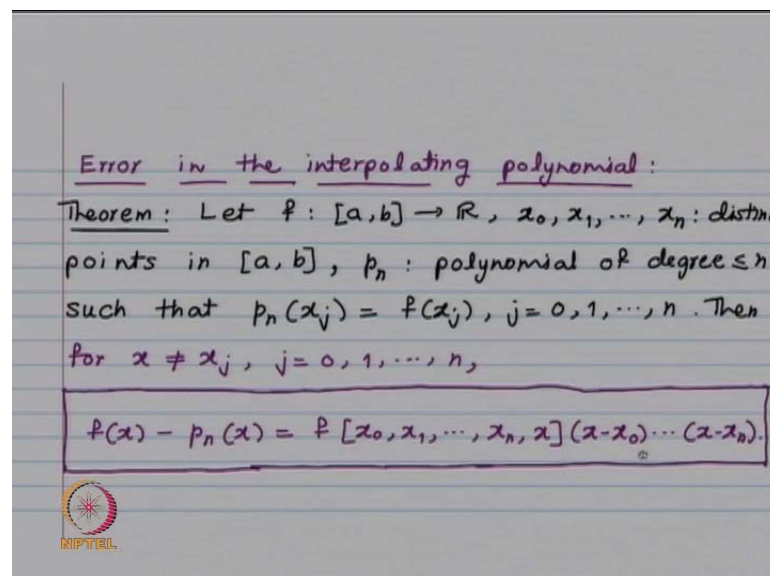 Error in the interpolating polynomial :
Theorem : Let f : [a, b] → ℝ, x₀, x₁, ⋯, xₙ : distin
points in [a, b], pₙ : polynomial of degree ≤ n
such that pₙ(xⱼ) = f(xⱼ), j = 0, 1, ⋯, n. Then
for x ≠ xⱼ, j = 0, 1, ⋯, n,
f(x) - pₙ(x) = f [x₀, x₁, ⋯, xₙ, x] (x-x₀) ⋯ (x-xₙ).
NPTEL